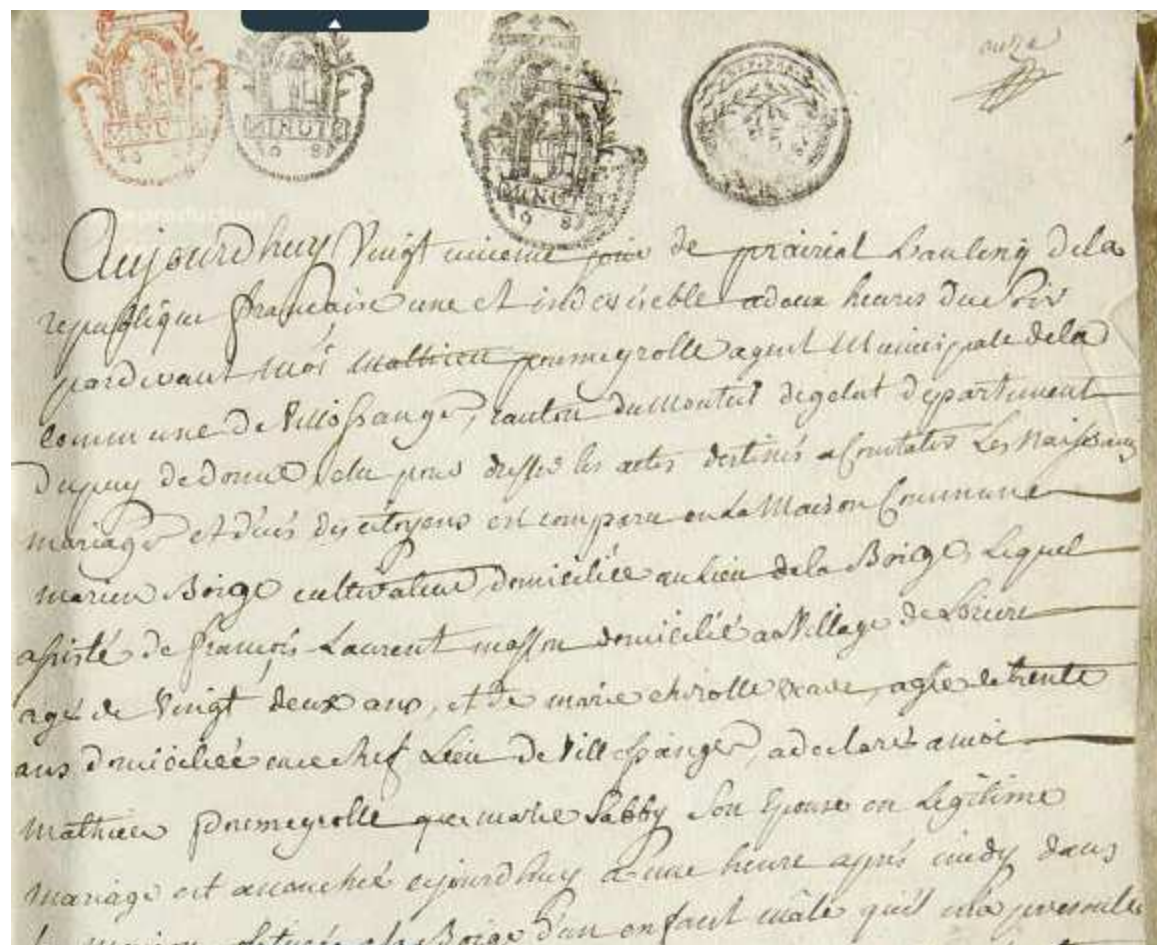 onze
MINUTE
MINUTE
MINUTE
REP. FRA.
production
Aujourdhuy Vingt unieme jour de prairial L'an Cinq dela
republique francaise une et indivisible a deux heures du Soir
pardevant Moi Mathieu poumeyrolle agent Municipale dela
commune de Villossange, canton du Montel degelat departement
Dupuy dedome elu pour dresser les actes destinés a Constater Les Naissances
mariage et déces des citoyens est comparu en La Maison Commune
marien Boige cultivateur domiciliée au Lieu dela Boige, Lequel
assisté de françois Laurent masson domicilié au Village de
agé de Vingt deux ans, et de marie chirolle veuve, agée de trente
ans domiciliée au chef Lieu de Villossange, a declaré a moi
Mathieu Poumeyrolle que marie Sabby Son Epouse en Legitime
mariage est acouchée aujourdhuy a une heure aprés midy dans
la maison situeé a la Boige d'un enfant mâle qu'il m'a presenté